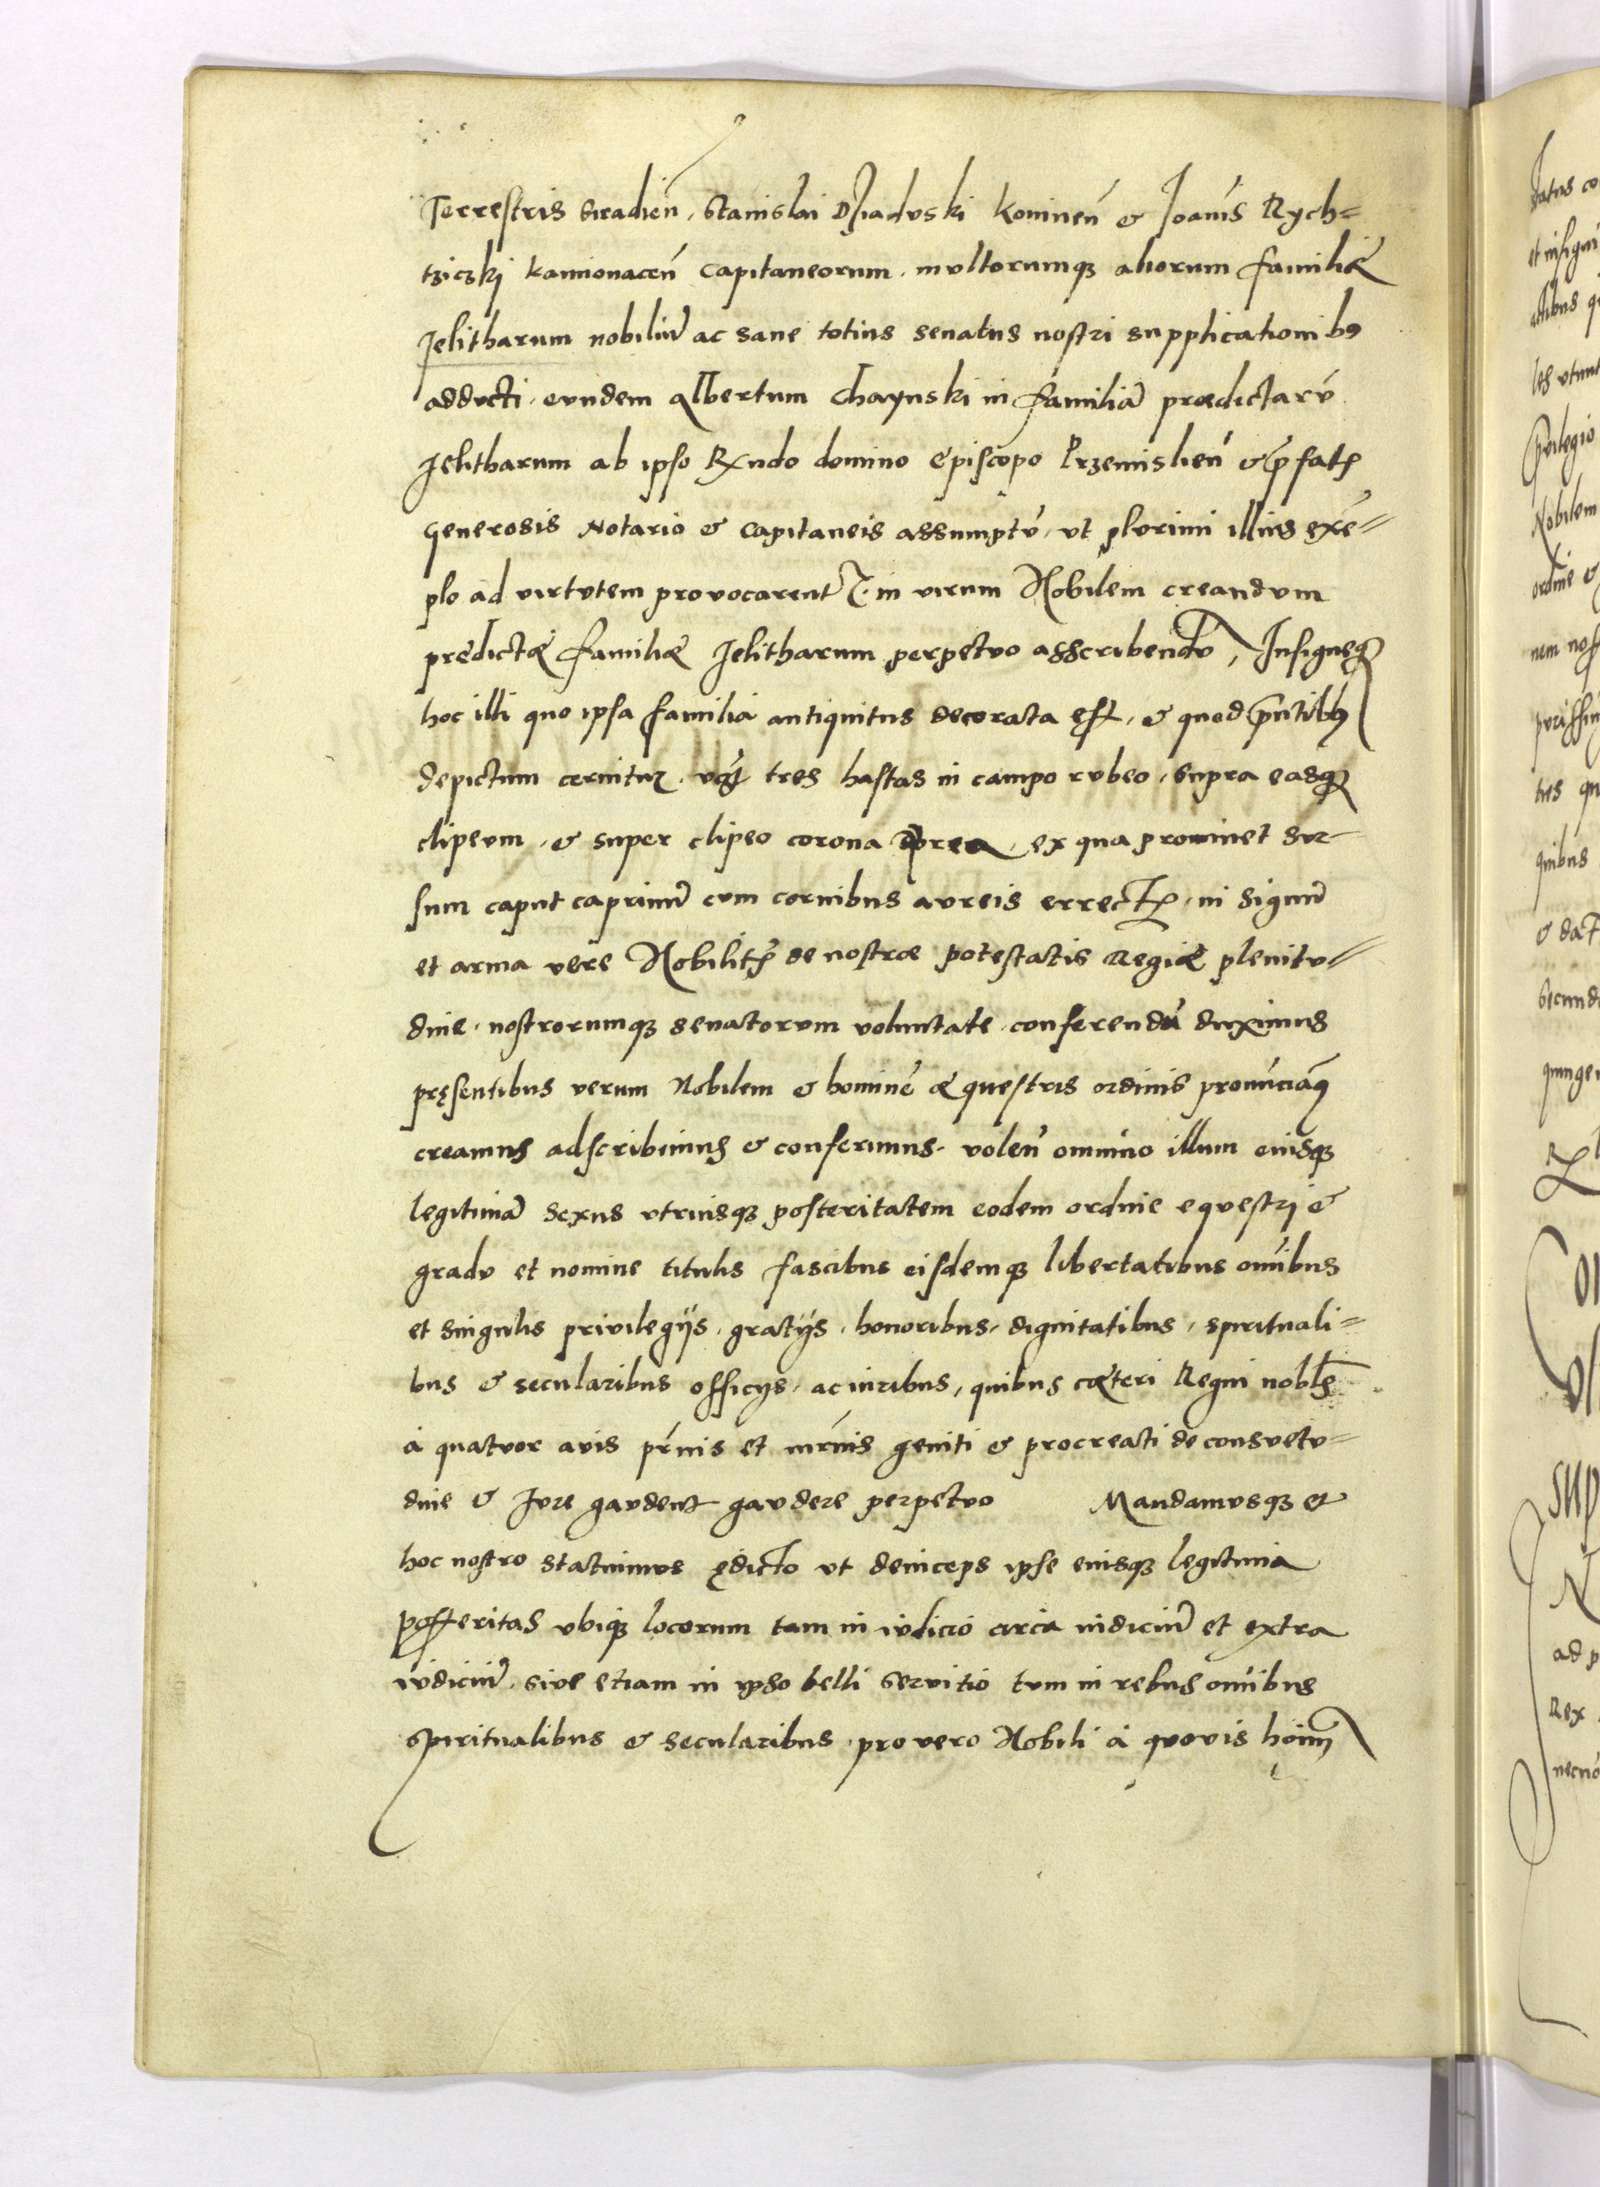 Terrestris Siradień, Stanislai Dziaduski Konineń & Joańis Rych=
tziczki Kamionaceń Capitaneorum, multorumq3 aliorum familiæ
Jelitharum nobiliū ac sane totius senatus nostri supplicationib9
adducti, eundem Albertum Chaynski in familiā prædictarū
Jelitharum ab ipso Rxndo domino Episcopo Przemislień & p̄fatis
Generosis Notario & Capitaneis assumptū, ut plurimi illius exē=
plo ad virtutem provocarentr, in virum Nobilem creandum
predictæ familiæ Jelitharum perpetuo asscribendū, Insigneq3
hoc illi quo ipsa familia antiquitus decorata est, & quod p̄ntib9
depictum cernitur, vz tres hastas in campo rubeo, supra easq3
clipeum, & super clipeo corona aurea, ex qua prominet sur=
sum caput caprinū cum cornibus aureis errectis, in signū
et arma vere Nobilitis de nostræ potestatis Regiæ plenitu=
dine, nostrorumq3 senatorum voluntate conferendū duximus
pręsentibus verum Nobilem & hominē æquestris ordinis pronūciam9
creamus adscribimus & conferimus, voleń omnino illum eiusq3
legitimā sexus utriusq3 posteritatem eodem ordine equestri &
gradu et nomine titulis fascibus eisdemq3 libertatibus omībus
et singulis privilegijs, gratijs, honoribus, dignitatibus, spirituali=
bus & secularibus officijs, ac iuribus, quibus cæteri Regni nobles
à quatuor avis pr̄nis et mr̄nis geniti & procreati de consuetu=
dine & Jure gaudent gaudere perpetuo Mandamusq3 et
hoc nostro statuimus ędicto ut deinceps ipse eiusq3 legitima
posteritas ubiq3 locorum tam in iudicio circa iudiciū et extra
iudiciū, sive etiam in ipso belli servitio tum in rebus omībus
spiritualibus & secularibus, pro vero Nobili à quovis hoim̄